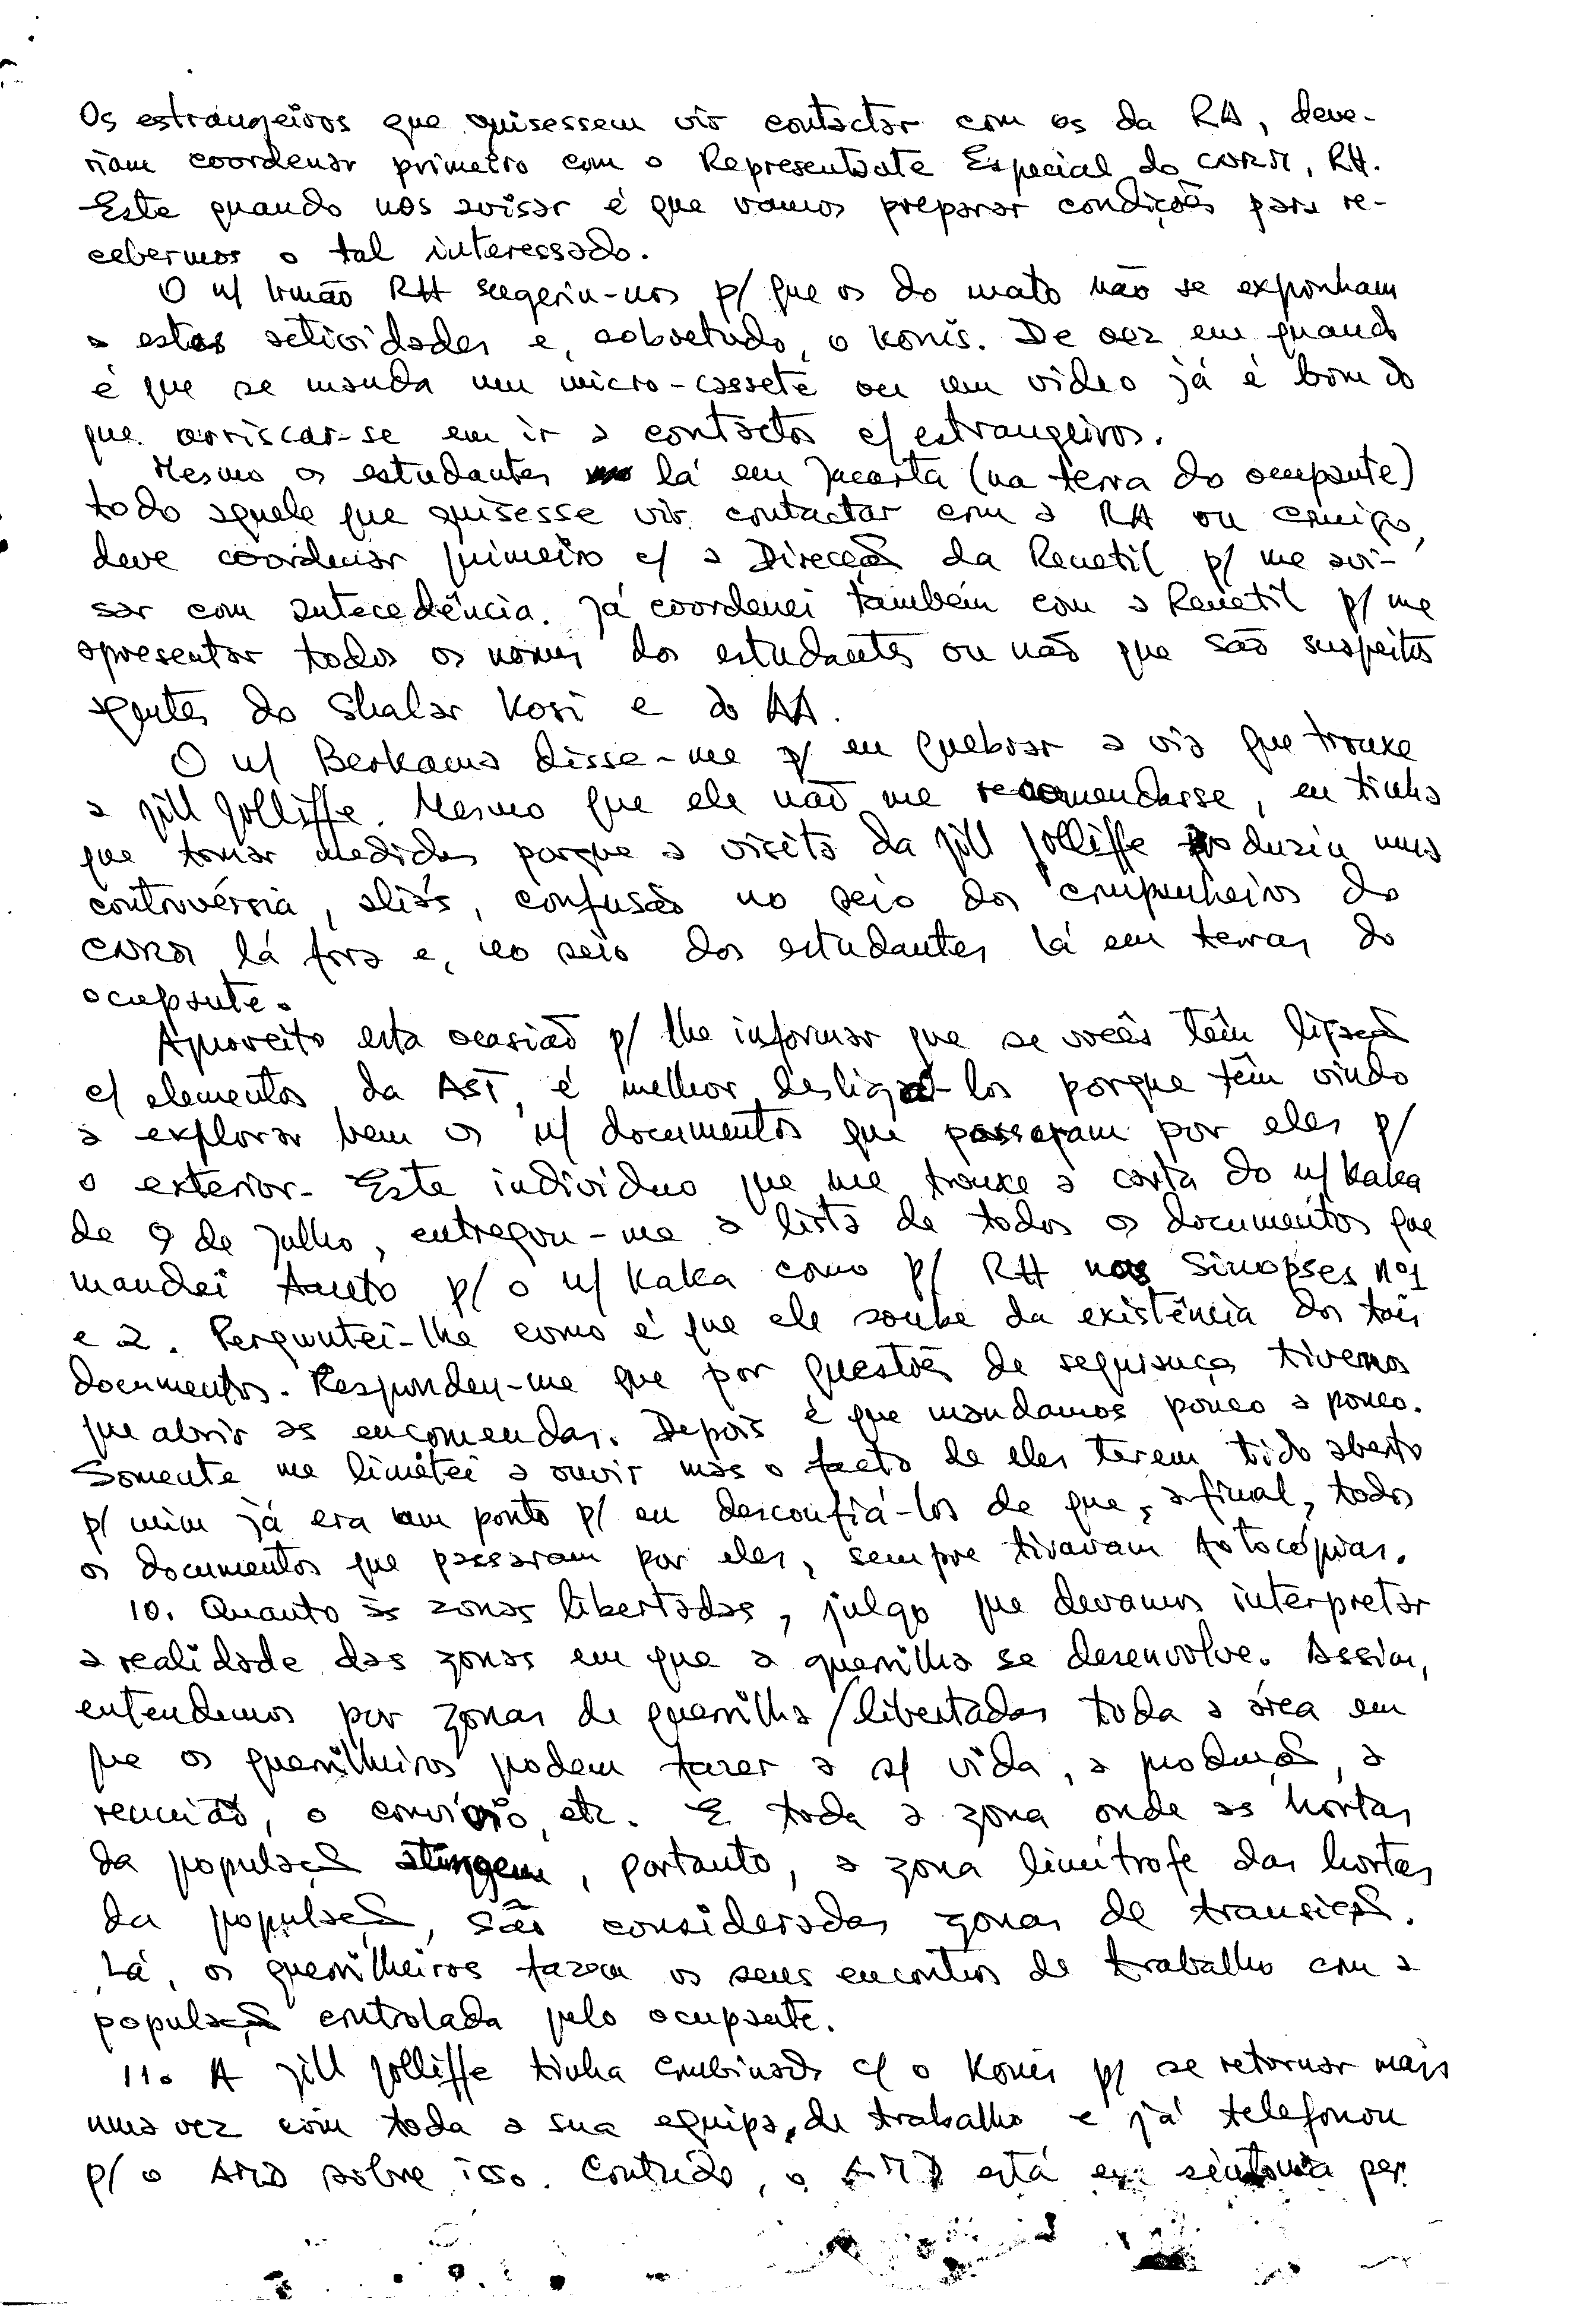 Os estrangeiros que quisessem vir contactar com os da RA, deve-
riam coordenar primeiro com o Representante Especial do CNRM, RH.
Este quando nos avisar é que vamos preparar condições para re-
cebermos o tal interessado.
O n/ Irmão RH sugeriu-nos p/ que os do mato não se exponham
a estas actividades e, sobretudo, o Konis. De vez em quando
é que se manda um micro-cassete ou um vídeo já é bom do
que arriscar-se em ir a contactos c/ estrangeiros.
Mesmo os estudantes lá em Jacarta (na terra do ocupante)
todo aquele que quisesse vir contactar com a RA ou comigo,
deve coordenar primeiro c/ a Direcção da Renetil p/ me avi-
sar com antecedência. Já coordenei também com a Renetil p/ me
apresentar todos os nomes dos estudantes ou não que são suspeitos
agentes do Shalar Kosi e do AA.
O n/ Berkama disse-me p/ eu quebrar a via que trouxe
a Jill Jolliffe. Mesmo que ele não me recomendasse, eu tinha
que tomar medidas porque a visita da Jill Jolliffe produziu uma
controvérsia, aliás, confusão no seio dos companheiros do
CNRM lá fora e, no seio dos estudantes lá em terras do
ocupante.
Aproveito esta ocasião p/ lhe informar que se vocês têm ligação
c/ elementos da AST, é melhor desligá-los porque têm vindo
a explorar bem os n/ documentos que passaram por eles p/
o exterior. Este indivíduo que me trouxe a carta do n/ Kaka
de 9 de Julho, entregou-me a lista de todos os documentos que
mandei tanto p/ o n/ Kaka como p/ RH nas Sinopses nº1
e 2. Perguntei-lhe como é que ele soube da existência dos tais
documentos. Respondeu-me que por questões de segurança tivemos
que abrir as encomendas. Depois é que mandamos pouco a pouco.
Somente me limitei a ouvir mas o facto de eles terem tido aberto
p/ mim já era um ponto p/ eu desconfiá-los de que, afinal, todos
os documentos que passaram por eles, sempre tiravam fotocópias.
10. Quanto às zonas libertadas, julgo que devamos interpretar
a realidade das zonas em que a guerrilha se desenvolve. Assim,
entendemos por zonas de guerrilha/libertadas toda a área em
que os guerrilheiros podem fazer a s/ vida, a produção, a
reunião, o convívio, etc. E toda a zona onde as hortas
da população atingem, portanto, a zona limítrofe das hortas
da população, são consideradas zonas de transição.
Lá, os guerrilheiros fazem os seus encontros de trabalho com a
população controlada pelo ocupante.
11. A Jill Jolliffe tinha combinado c/ o Konis p/ se retornar mais
uma vez com toda a sua equipa de trabalho e já telefonou
p/ o AMD sobre isso. Contudo, o AMD está em sintonia per